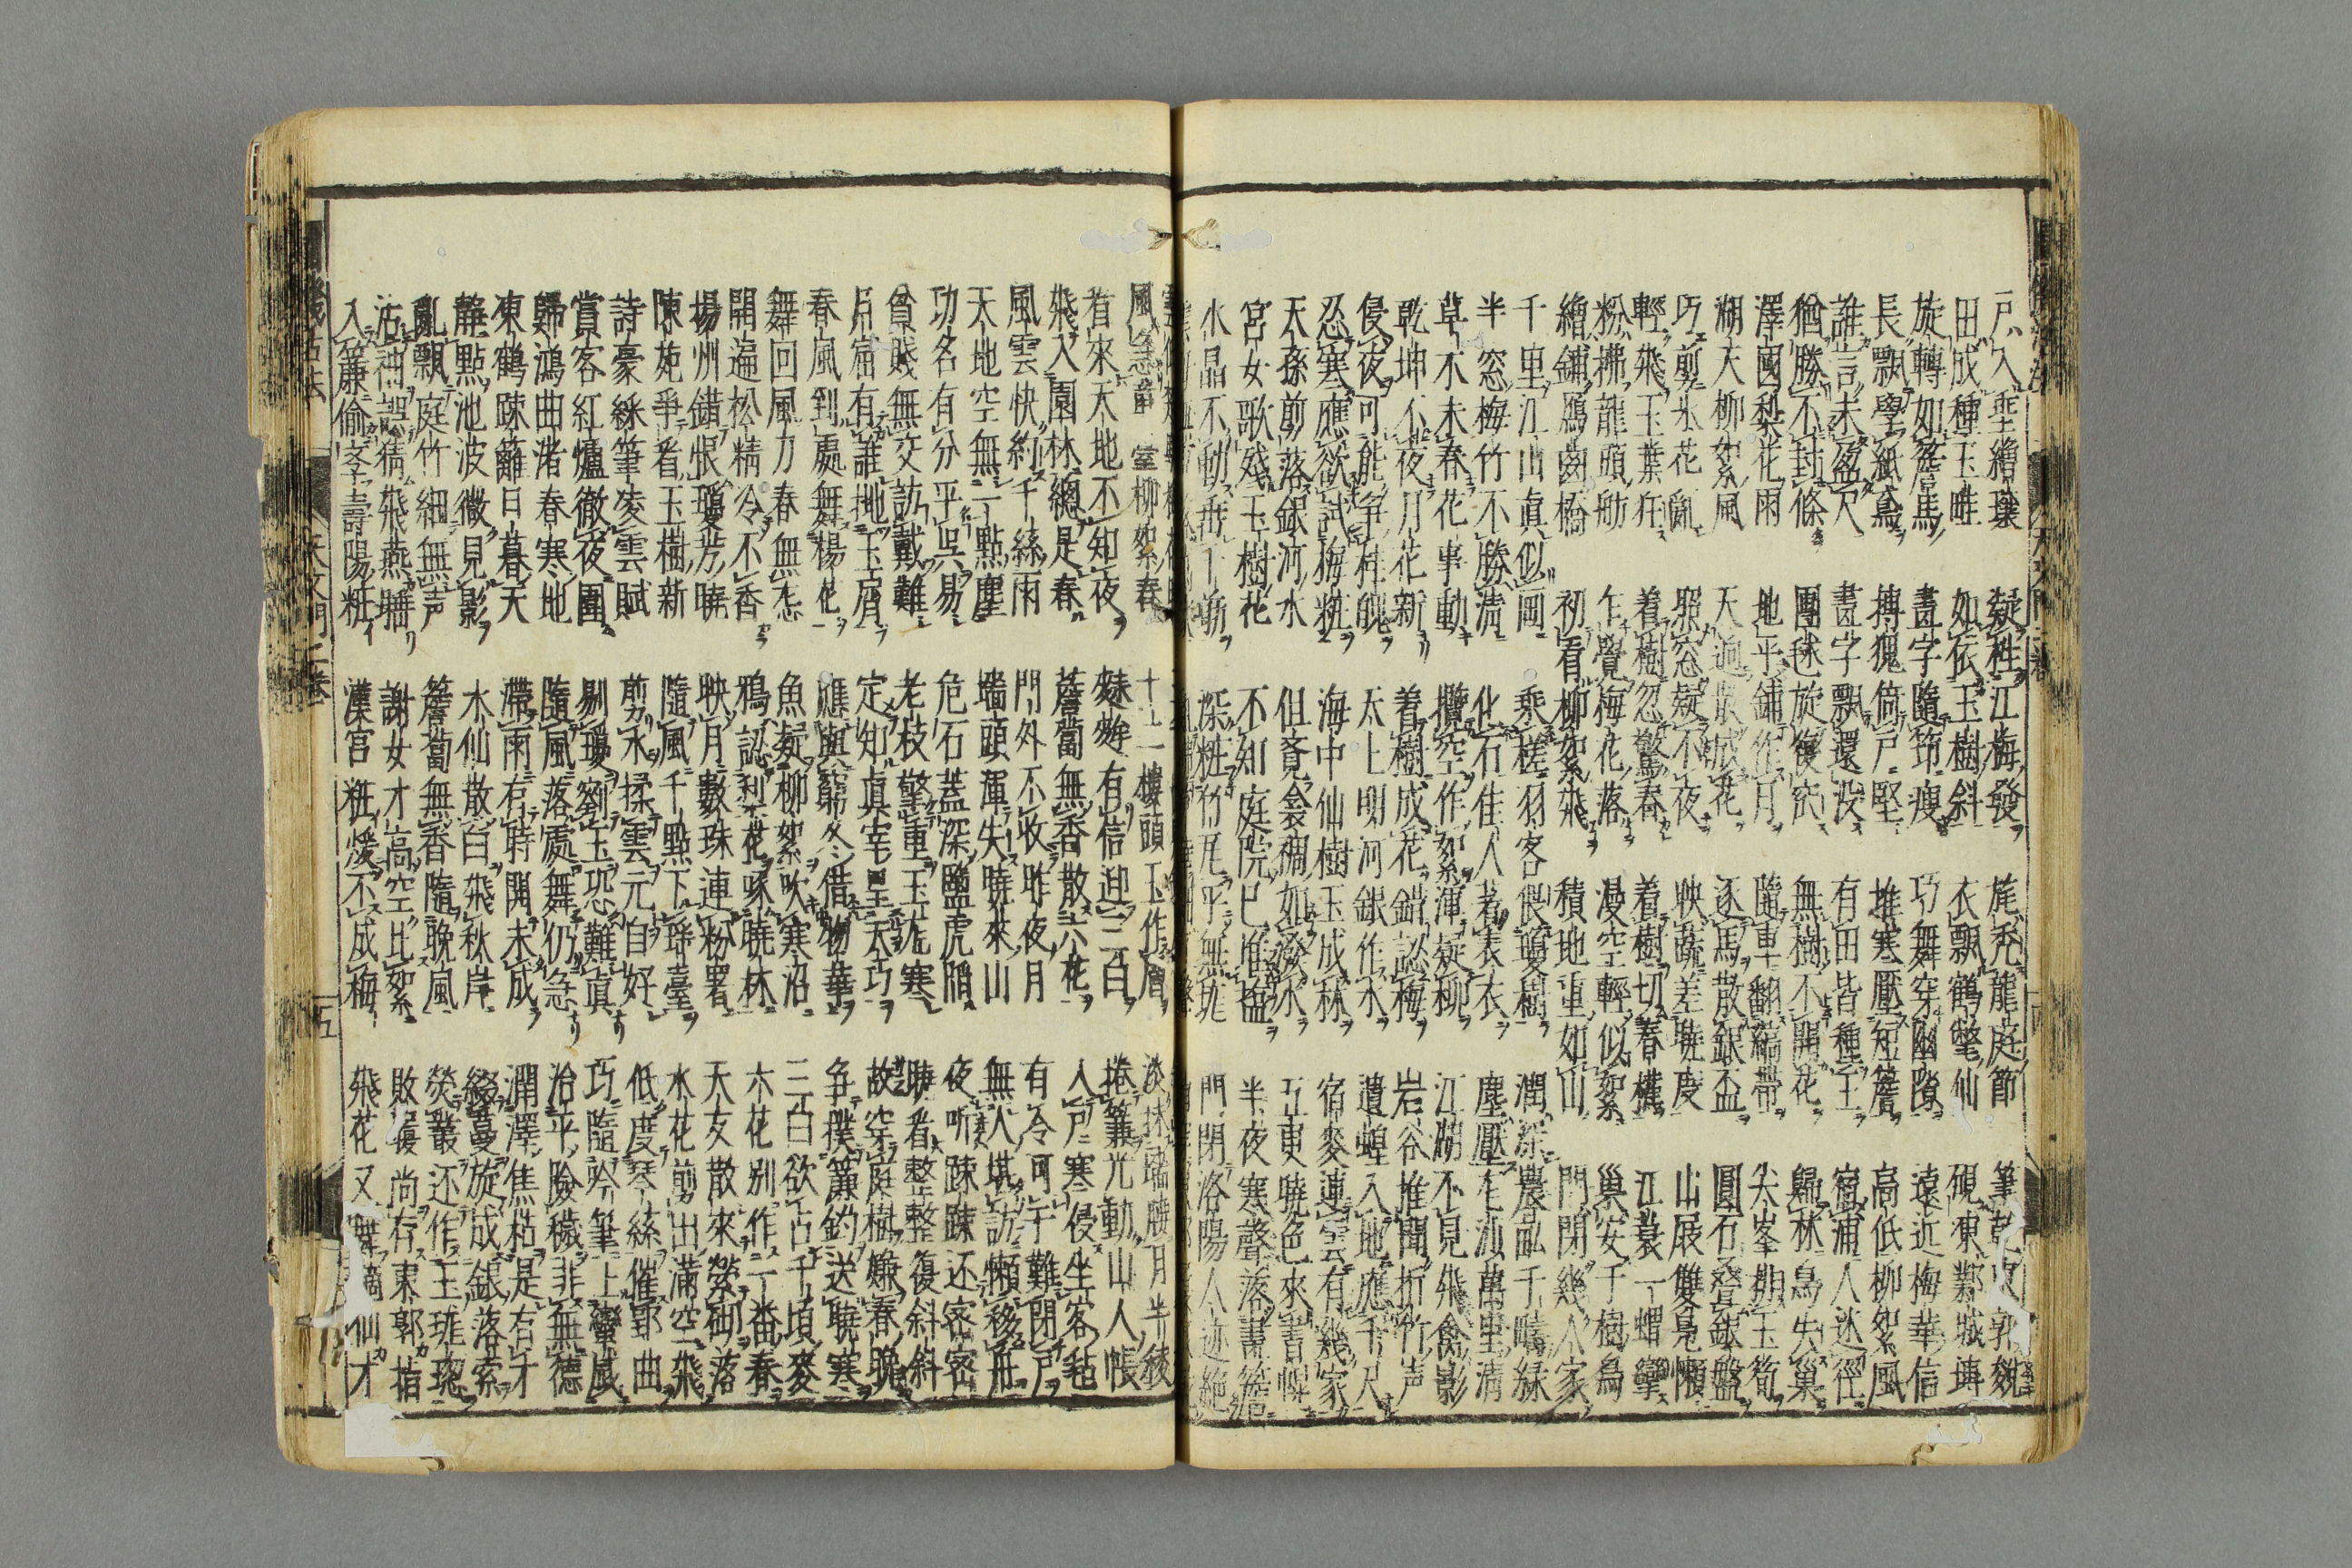 疑牲江梅發　尾禿龍庭節　筆
田成種玉畦　如依玉樹斜　衣飄鶴氅仙　硯凍鄴城塼
旋轉如簷馬　畫字隨筇瘦　巧舞穿幽隙　遠近梅華信
長飄學紙鳶　摶塊倚戸堅　堆寒壓短簷　高低柳絮風
誰言未盈尺　畫字飄還没　有田皆種玉　宿浦人迷徑
猶勝不封條　團毬旋復穿　無樹不開花　歸林鳥失巣
澤國梨花雨　地平鋪作月　隨車翻縞帶　尖峯排玉筍
湖天柳絮風　天逈成花　逐馬散銀盃　圓石疊銀盤
巧剪氷花亂　照窓疑不夜　映蔬差曉度　山屐雙鳬懶
輕飛玉葉狂　着樹忽驚春　着樹切春機　江蓑一蝟攣
粉拂龍頭舫　乍覺梅花落　漫空輕似絮　巣安千樹鳥
繪鋪鴈齒橋　初看柳絮飛　積地重如山　門閉幾人家
千里江山眞似畫　乘槎羽客偎瓊樹　潤深農畝千疇緑
半窓梅竹不勝清　化石佳人著衣　塵壓萬里清
草木未春花事動　攬空作絮渾疑柳　江湖不見飛禽影
乾坤不夜月花新　着樹成花錯認梅　岩谷惟聞折竹声
侵夜可能爭桂魄　太上明河銀作水　遺蝗入地應千尺
忍寒應欲試梅粧　海中仙樹玉成林　宿麥連雲有幾家
天孫剪落銀河水　但覺衾裯如溌水　五更曉色來書幌
宮女歌殘玉樹花　不知庭院已堆塩　半夜寒聲落畫簷
水晶不動垂千筯　深粧竹尾平無　門閉洛陽人迹絶
風急　一堂柳絮春　十二樓頭玉作層　淡抹瑞臘月半稜
看來天地不知夜　有信迎三白　捲簾光動山人帳
飛入園林總是春　薝蔔無香散六花　入戸寒侵坐客毡
風雲快約千絲雨　門外不收昨夜月　有冷可干難閉戸
天地空無一點塵　墻頭渾失曉來山　無人堪訪懶移舟
功名有分平呉易　危石蓋深鹽虎陷　夜听踈踈还密密
貧賤無交訪戴難　老枝擎重玉龍寒　曉看整整復斜斜
月窟有誰抛玉屑　定知眞宰呈天巧　故穿庭樹嫌春晩
春風到處舞楊花　應與窮冬借物華　争撲簾鈎送曉寒
舞回風力春無态　魚疑柳絮吹寒沼　三白欲占千頃麥
開遍松精冷不香　鴉認梨花啄曉林　六花別作一番春
揚州錯恨瓊芳曉　映月數珠連粉署　天友散來瑩砌落
陳苑爭看玉樹新　隨風千點下瑶臺　水花剪出滿空飛
詩豪綵筆凌雲賦　剪水揉雲元自好　低度琴絲催郢曲
賞客紅爐徹夜圍　剔瓊劉玉恐難眞　巧隨吟筆上鸞牋
歸鴻曲渚春寒地　隨風落處舞仍急　治平險穢非無德
凍鶴踈籬日暮天　滯雨有時開未成　潤澤焦枯是有才
静點池波微見影　水仙散白飛秋岸　綴蔓旋成銀落索
亂飄庭竹細無声　簷蔔無香隨晩風　熒叢还作玉
沾袖誤猜飛燕唾　謝女才高空比絮　敗履尚存東郭指
入簾偷壽陽粧　漢宮粧煖不成梅　飛花又舞謫仙才
天文門　一巻　五